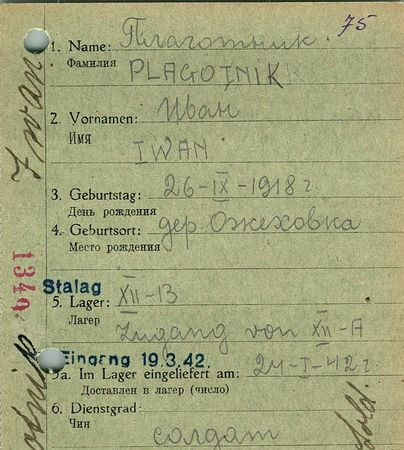 75
1. Name: Плаготник
Фамилия
PLAGOTNIK
2. Vornamen: Иван
Имя
IWAN
3. Geburtstag: 26-IX-1918 г.
День рождения
4. Geburtsort: дер Ожеховка
Место рождения
Stalag
5. Lager: XII-13
Лагер
Zugang von XII-A
Eingang 19.3.42.
5a. Im Lager eingeliefert am: 24-I-42 г.
Доставлен в лагер (число)
6. Dienstgrad:
Чин
солдат
Sold.
Iwan
1349